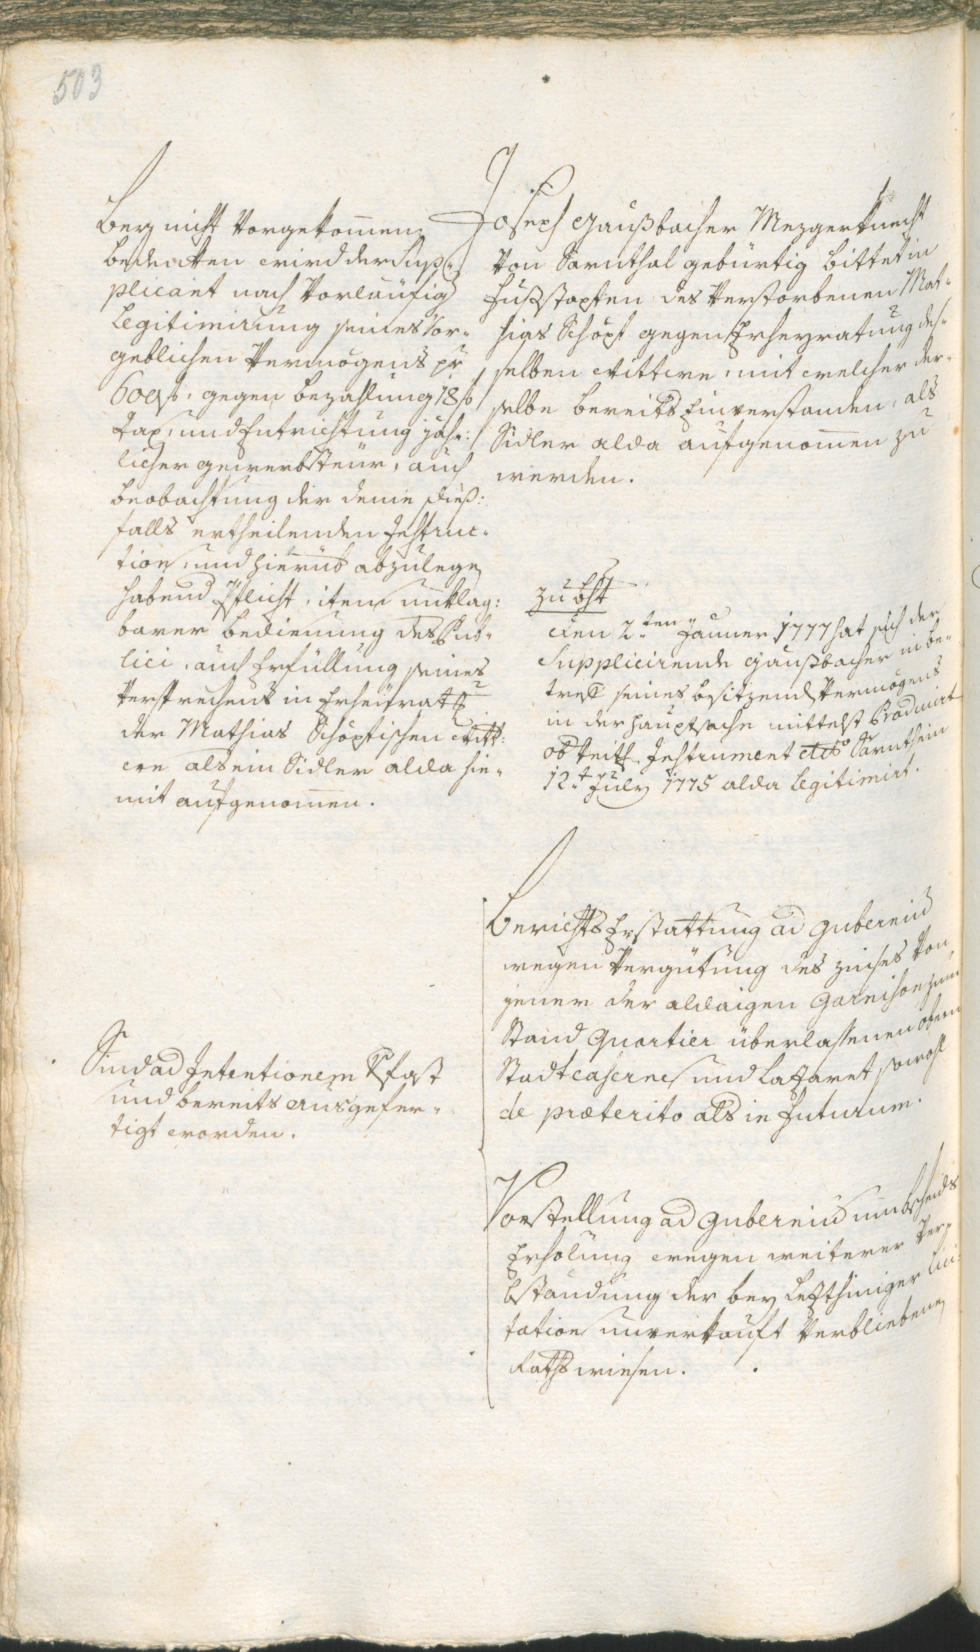 503
Bey nicht Vorgekomēnen
bedenken wird der Sup¬
plicant nach Vorläufig
Legitimirung seines Vor¬
geblichen Vermögens pr
600 f. gegen bezahlung 18 f
Tax, und Entrichtung jähr¬
licher gewerbsteur, auch
beobachtung der deme dieß¬
falls ertheilenden Instruc¬
tion, und hierüb abzulegen
habend Pflicht, item unklag¬
barer bedienung des Pub¬
lici, auch Erfüllung seines
Versprechens in Erheurat
der Mathias Schöpfischen Witt¬
we als ein Sidler alda hie¬
mit aufgenomēn.
Joseph Gaußbacher Mezgerknecht
Von Sarnthal gebürtig bittet in
Fußstapfen des Verstorbenen Mat¬
hias Schöpf gegen Erheyratung des¬
selben Wittwe, mit welcher der¬
selbe bereits Einverstanden, als
Sidler alda aufgenomēn zu
werden.
den 2.ten Jänner 1777 hat sich der
Supplicirende Gaußbacher in be¬
treff seines besitzend Vermögens
in der hauptsache mittelst Producirt
obrigkeitl. Instrument ddo Sarnthein
12. July 1775 alda Legitimirt.
Berichts Erstattung ad Gubernium
wegen Vergütung des zinses Von
jener der aldaigen Garnison zum
Stand Quartier überlassenen obern
Stadtcasernes und Lazaret sowohl
de præterito als in Futurum.
Sind ad Intentionem Verfast
und bereits ausgefer¬
tigt worden.
Vorstellung ad Gubernium um bscheids
Erholung wegen weiterer Ver¬
bstandung der bey Letzthiniger Lici
tation unverkauft Verbliebenen
Rathswiesen.